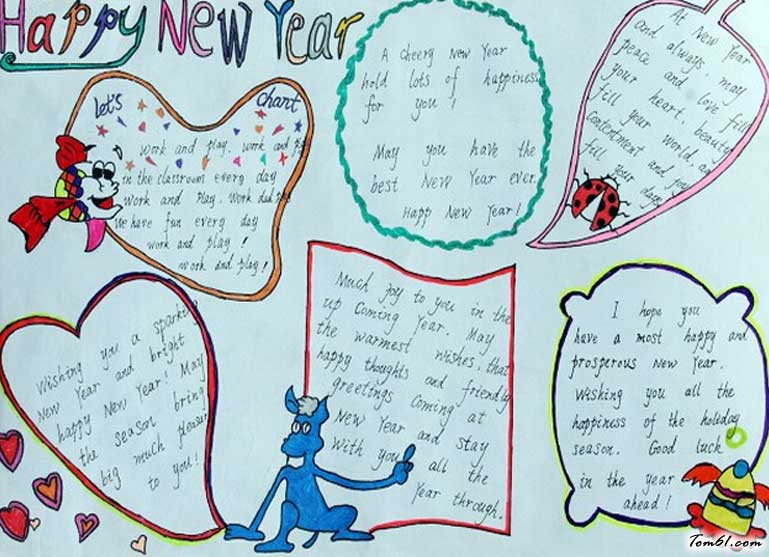 Happy New Year
Let's chart
Work and play. work and play
in the classroom every day
Work and Play. Work and play
We have fun every day
work and play!
work and play!
A Cheery New Year
hold lots of happiness
for you!
May you have the
best New Year ever.
Happy New Year!
At New Year
and always, may
peace and love fill
your heart, beauty
fill your world, and
contentment and joy
fill your days
Wishing you a sparkling
New Year and bright
happy New Year! May
the season bring
big much pleasure
to you!
Much joy to you in the
up Coming Year. May
the warmest wishes, that
happy thoughts and friendly
greetings Coming at
New Year and stay
with you all the
Year through.
I hope you
have a most happy and
prosperous New Year.
Wishing you all the
happiness of the holiday
season. Good luck
in the year
ahead!
Tom61.com